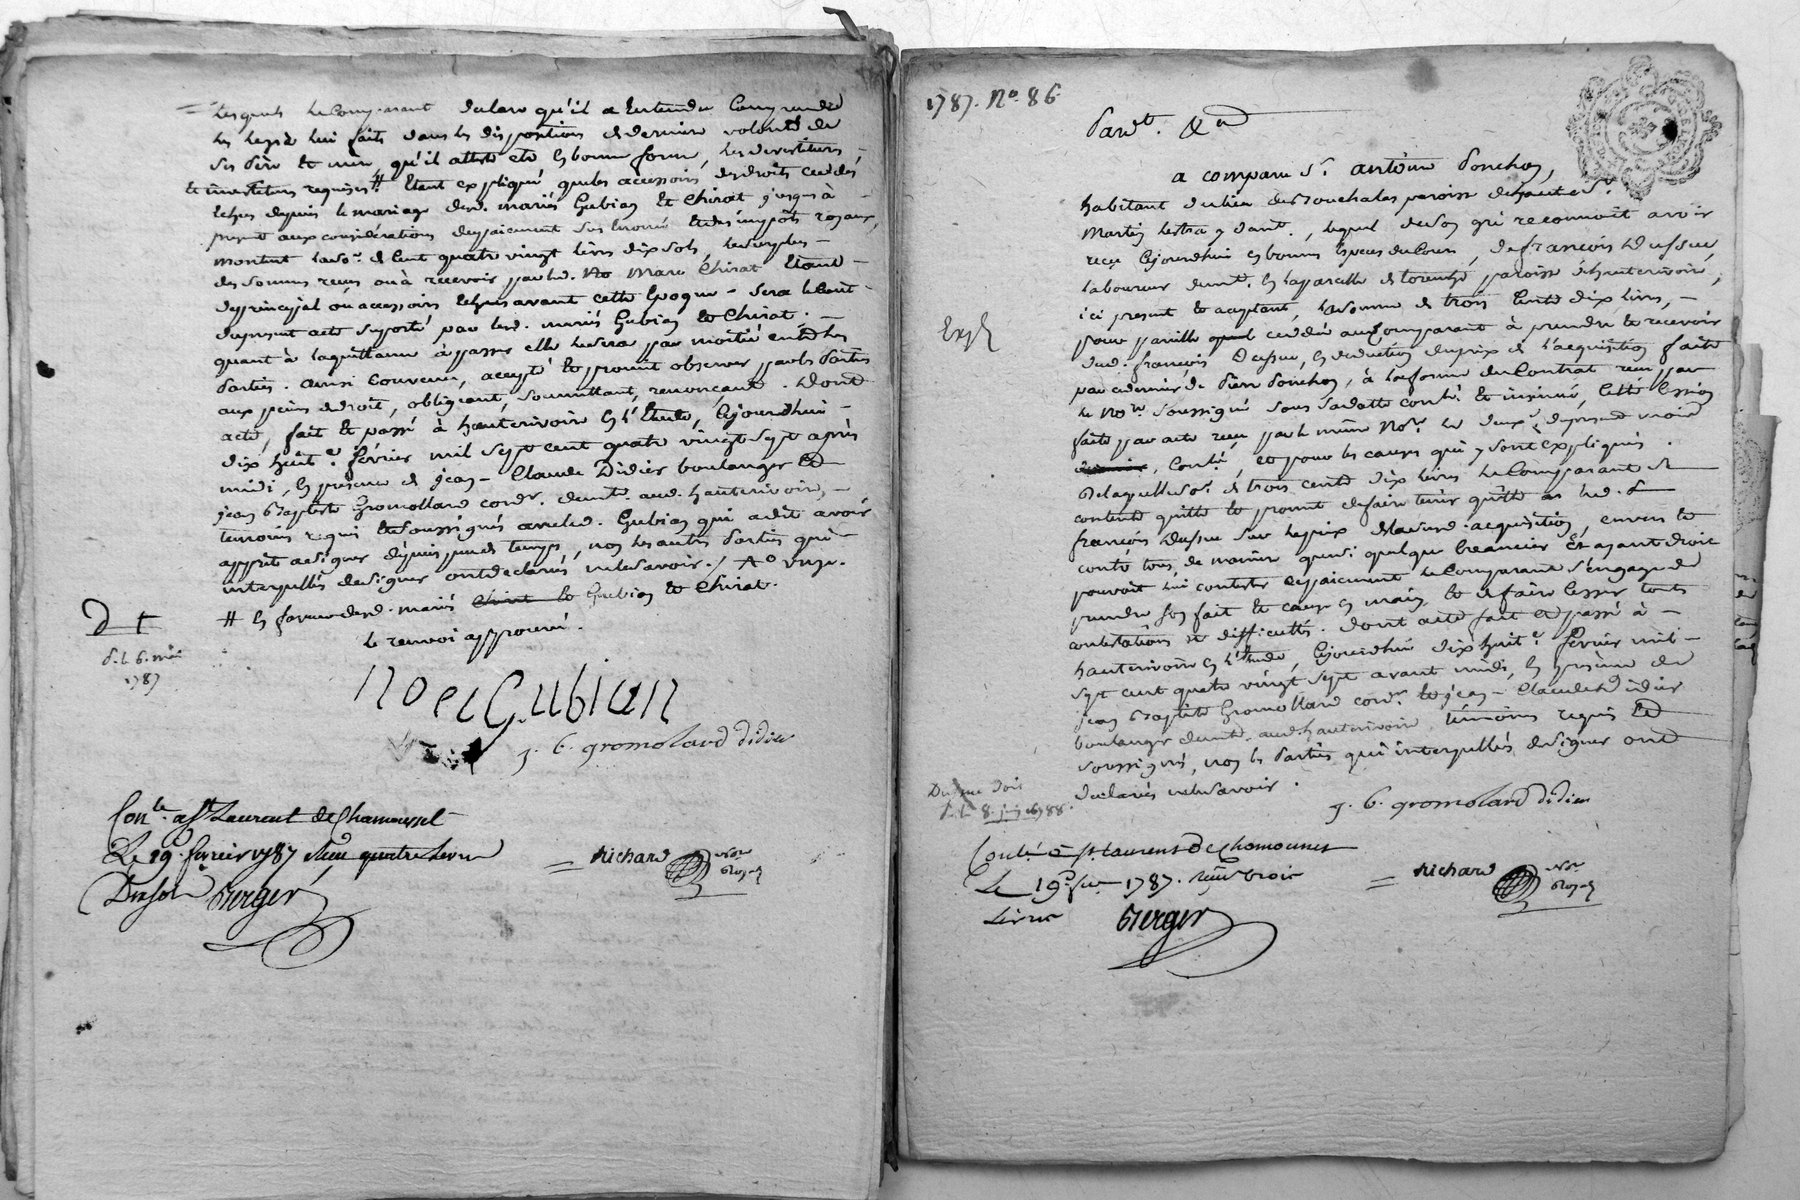 lesquels le Comparant declare qu'il a Entendu Comprendre
les legs à lui faits dans les dispositions de derniere volonté de
ses père et mère, qu'il atteste etre en bonne forme, les devestitures
et investitures requises # Etant expliqué que les accessoires des droits cedés,
Echus depuis le mariage desd. mariés Gubian et Chirat jusques à
present aux considerations de payement des impots royaux,
montent la so.e de Cent quatre vingt livres dix sols, le surplus
des sommes reçues ou à recevoir par led. No Marc Chirat Etant
de principal ou accessoires Echus avant cette Epoque. sera le Cout
du present acte suporté par lesd. mariés Gubian et Chirat.
quant à la quittance à passer elle le sera par moitié entre les
Parties. ainsi convenu, accepté et promit observer par les Parties
aux peines de droit, obligeant, soumettant, renonçant. dont
acte, fait et passé à hauterivoire en l'Etude, Cejourdhui
dix huit.e fevrier mil sept cent quatre vingt sept après
midi, en presence de jean Claude Didier boulanger et
jean Baptiste Gromollard cord.r demt. aud. hauterivoire,
temoins requis et soussignés avec led. Gubian qui a dit avoir
appris à signer depuis peu de temps, non les autres Parties qui
interpellés de signer ont declarés ne le savoir.
# en faveur desd. mariés Chirat et Gubian et Chirat.
le renvoi approuvé.
D t
d.l. 6. mai
1787
noel Gubian
j. b. gromolard didier
Con.le a St Laurent de Chamousset
Le 19. fevrier 1787 Reçu quatre livres
Dix sols Berger
Richard
No.re
Royal
1787. No. 86.
Pard.t
a comparu S.r antoine Ponchon,
habitant du lieu des Souchalas paroisse de haute S.t
Martin lestra y dem.t, lequel de son gré reconnoit avoir
reçu Cejourdhui en bonnes Especes de Cours, de françois Dussue
laboureur demt. en la parcelle de lorentzi paroisse d'hauterivoire,
ici present et acceptant, la somme de trois Cents dix livres,
pour pareille cedée au Comparant à prendre et recevoir
dud. françois Dussue, en deduction du prix de l'acquisition faite
par ce dernier de Pierre Ponchon, à la forme du Contrat reçu par
le No.re soussigné sous sa datte contr.é et insinué, Cette Cession
faite par acte reçu par le même No.re le deux du present mois
, Contr.é, et pour les causes qui y sont expliquées.
De laquelle so.e de trois cents dix livres le Comparant se
contente quitte et promet de faire tenir quitte led. S.r
françois Dussue sur le prix de la vend. acquisition, envers et
contre tous, de maniere que si quelque Creancier Et ayant droit
pouvoit lui contester ce payement le Comparant s'engage de
prendre son fait et cause en main et de faire cesser touts
contestations et difficultés. dont acte fait et passé à
hauterivoire en l'Etude, Cejourdhui dix huit.e fevrier mil
sept cent quatre vingt sept avant midi, en presence de
jean Baptiste Gromollard cord.r et jean Claude Didier
boulanger demt. aud. hauterivoire, temoins requis et
soussignés, non les Parties qui interpellés de signer ont
declarés ne le savoir.
Expt
Dussue doit
j. b. gromolard didier
Contr.é a St Laurent de Chamousset
Le 19. fev. 1787. Reçu trois
Livres Berger
Richard
No.re
Royal